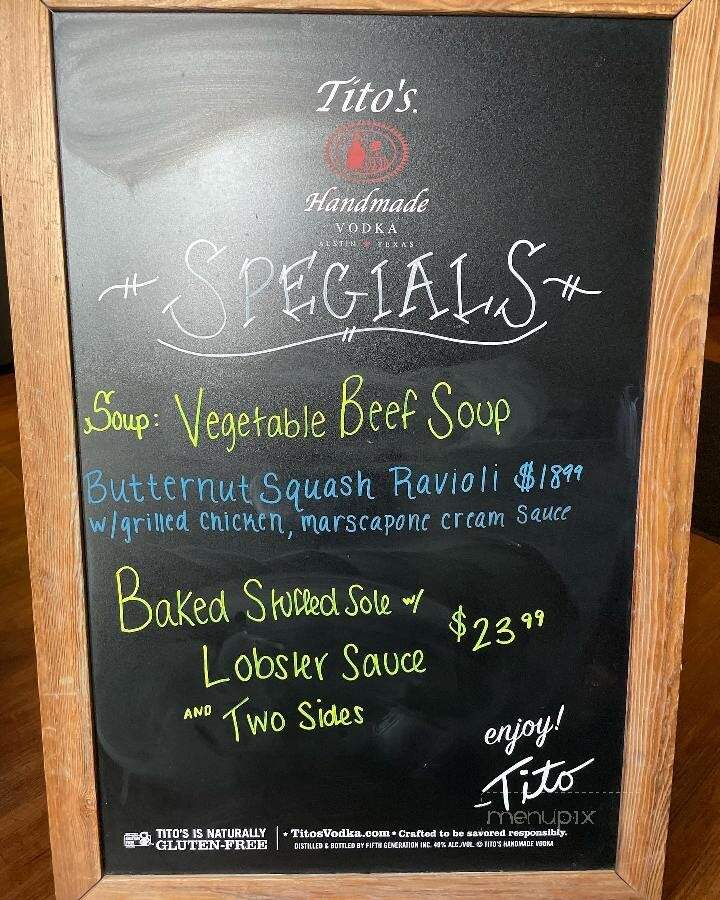 Tito's
Handmade
VODKA
AUSTIN TEXAS
SPECIALS
Soup: Vegetable Beef Soup
Butternut Squash Ravioli $18⁹⁹
w/grilled chicken, marscapone cream sauce
Baked Stuffed Sole w/
Lobster Sauce $23⁹⁹
AND Two Sides
enjoy!
-Tito
menupix
TITO'S IS NATURALLY
GLUTEN-FREE
• TitosVodka.com • Crafted to be savored responsibly.
DISTILLED & BOTTLED BY FIFTH GENERATION INC. 40% ALC./VOL. © TITO'S HANDMADE VODKA